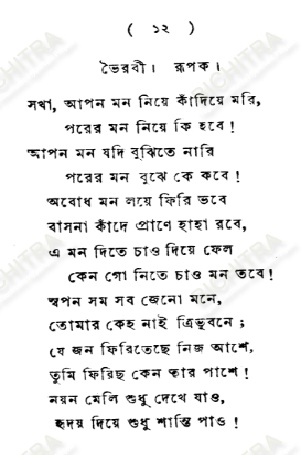 ( ১২ )
ভৈরবী। রূপক।
সখা, আপন মন নিয়ে কাঁদিয়ে মরি,
পরের মন নিয়ে কি হবে!
আপন মন যদি বুঝিতে নারি
পরের মন বুঝে কে কবে!
অবোধ মন লয়ে ফিরি ভবে
বাসনা কাঁদে প্রাণে হাহা রবে,
এ মন দিতে চাও দিয়ে ফেল
কেন গো নিতে চাও মন তবে!
স্বপন সম সব জেনো মনে,
তোমার কেহ নাই ত্রিভুবনে;
যে জন ফিরিতেছে নিজ আশে,
তুমি ফিরিছ কেন তার পাশে!
নয়ন মেলি শুধু দেখে যাও,
হৃদয় দিয়ে শুধু শান্তি পাও!